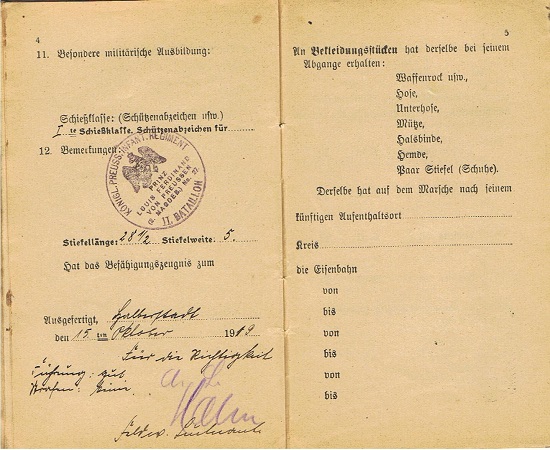 4
11. Besondere militärische Ausbildung:
Schießklasse: (Schützenabzeichen usw.)
I te Schießklasse. Schützenabzeichen für
12. Bemerkungen
KÖNIGL. PREUSS. INFANT. REGIMENT
PRINZ
LOUIS FERDINAND
VON PREUSSEN
(2. MAGDEB.) No. 27
II. BATAILLON
Stiefellänge: 28 1/2 Stiefelweite: 5.
Hat das Befähigungszeugnis zum
Ausgefertigt, Halberstadt
den 15. ten Oktober 1919
Für die Richtigkeit
Führung: gut
Strafen: keine
5
An Bekleidungsstücken hat derselbe bei seinem
Abgange erhalten:
Waffenrock usw.,
Hose,
Unterhose,
Mütze,
Halsbinde,
Hemde,
Paar Stiefel (Schuhe).
Derselbe hat auf dem Marsche nach seinem
künftigen Aufenthaltsort
Kreis
die Eisenbahn
von
bis
von
bis
von
bis